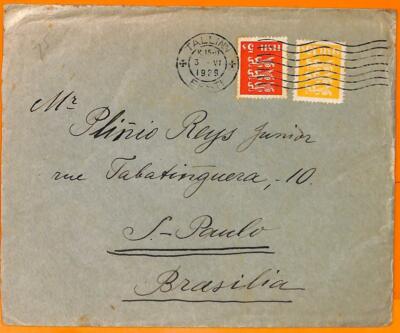 25
TALLINN
3 - VI
1929
EESTI
EESTI 5 S
Mr
Plinio Reys Junior
rue Tabatinguera, - 10.
S.- Paulo
Brasilia